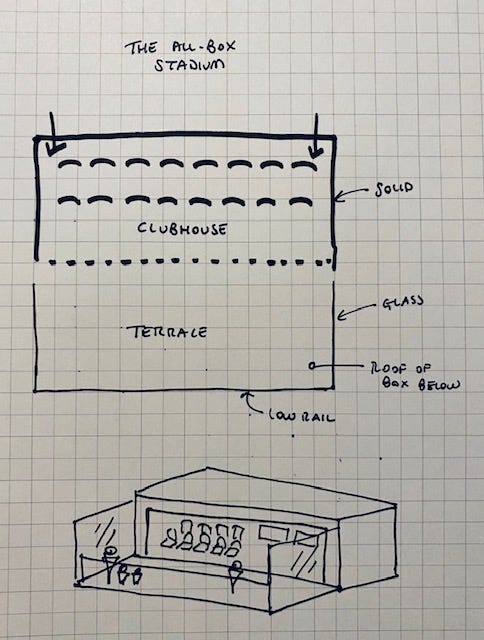 THE ALL-BOX
STADIUM
SOLID
CLUBHOUSE
GLASS
TERRACE
ROOF OF
BOX BELOW
LOW RAIL